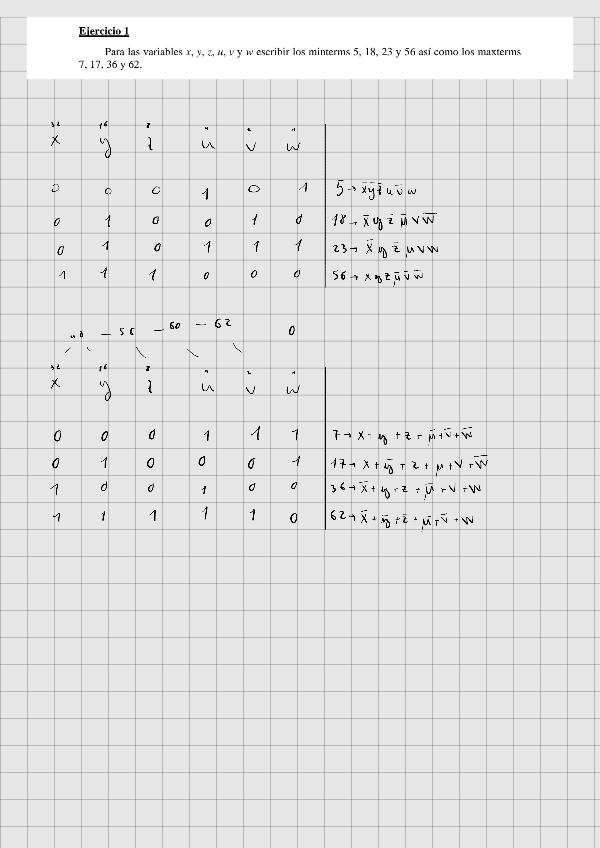 Ejercicio 1
Para las variables x, y, z, u, v y w escribir los minterms 5, 18, 23 y 56 así como los maxterms
7, 17, 36 y 62.
32 16 8 4 2 1
x y z u v w
0 0 0 1 0 1 5 → x̄ ȳ z̄ u v̄ w
0 1 0 0 1 0 18 → x̄ y z̄ ū v w̄
0 1 0 1 1 1 23 → x̄ y z̄ u v w
1 1 1 0 0 0 56 → x y z ū v̄ w̄
48 – 56 – 60 – 62 0
32 16 8 4 2 1
x y z u v w
0 0 0 1 1 1 7 → x + y + z + ū + v̄ + w̄
0 1 0 0 0 1 17 → x + ȳ + z + u + v + w̄
1 0 0 1 0 0 36 → x̄ + y + z + ū + v + w
1 1 1 1 1 0 62 → x̄ + ȳ + z̄ + ū + v̄ + w